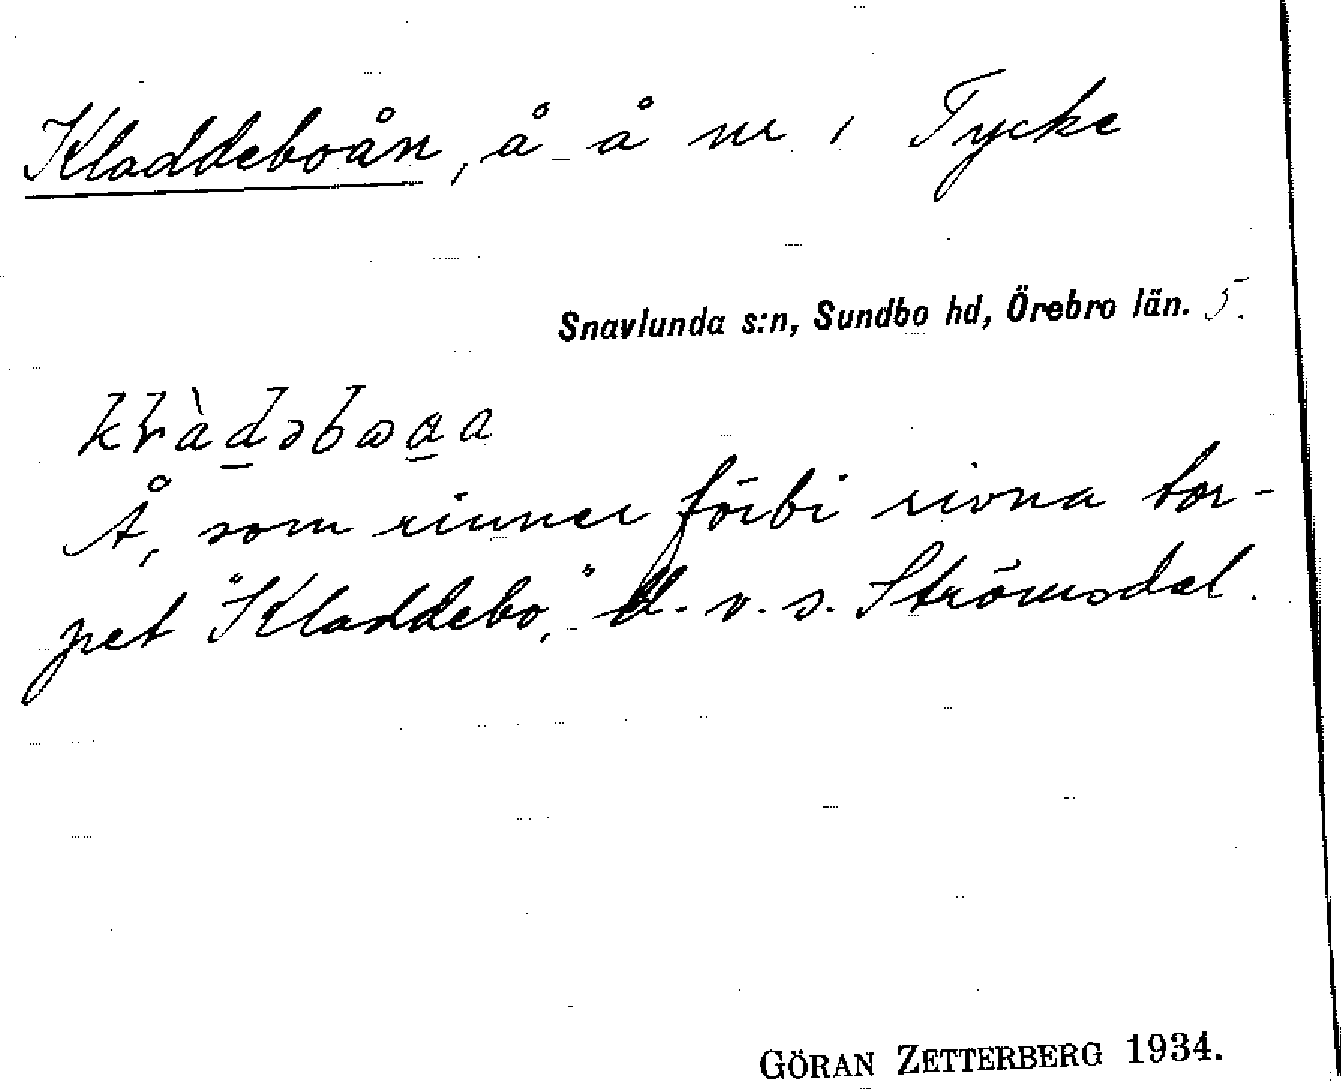 Kladdeboån, å å nr 1 Tycke
Snavlunda s:n, Sundbo hd, Örebro län. 5.
Å, som rinner förbi rivna tor-
pet "Kladdebo," d. v. s. Strömsdal.
GÖRAN ZETTERBERG 1934.